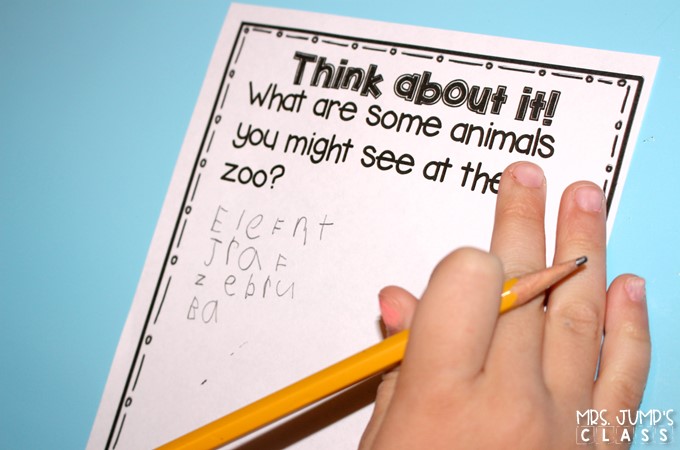 Think about it!
What are some animals
you might see at the
zoo?
Elefnt
Jraf
zebru
Ba
MRS. JUMP'S
CLASS